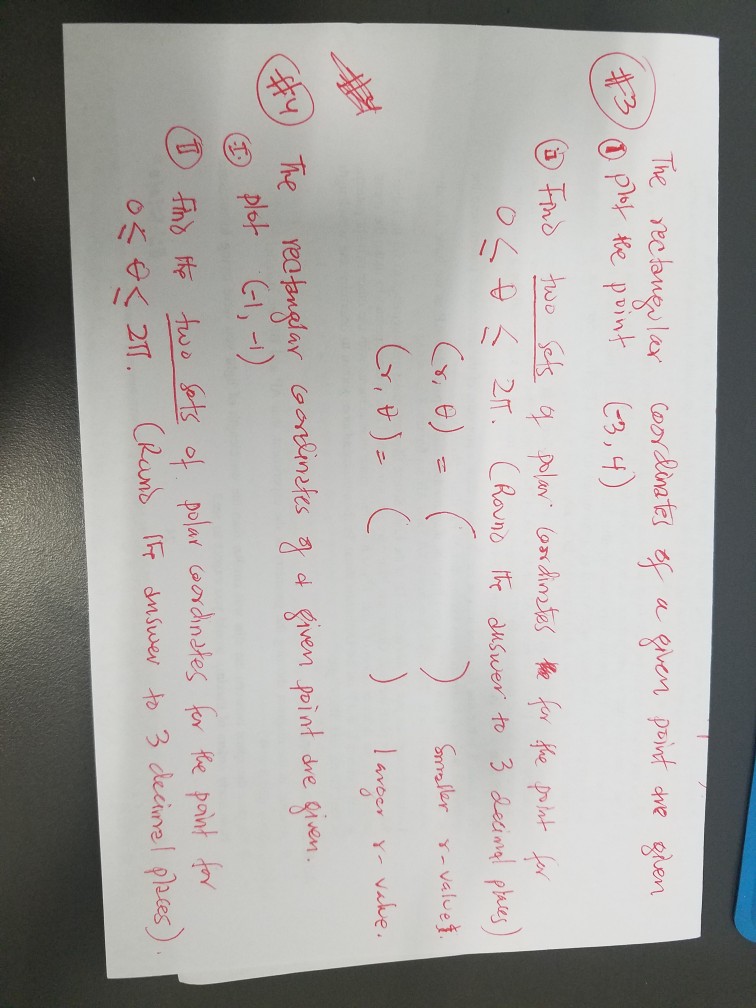 #3 The rectangular coordinates of a given point are given
① plot the point (-3, 4)
ⓘⓘ Find two sets of polar coordinates for the point for
0 ≤ θ ≤ 2π. (Round the answer to 3 decimal places)
(r, θ) = ( ) Smaller r-value.
(r, θ) = ( ) larger r-value.
#4 The rectangular coordinates of a given point are given.
Ⓘ plot (-1, -1)
Ⅱ find the two sets of polar coordinates for the point for
0 ≤ θ ≤ 2π. (Round the answer to 3 decimal places).